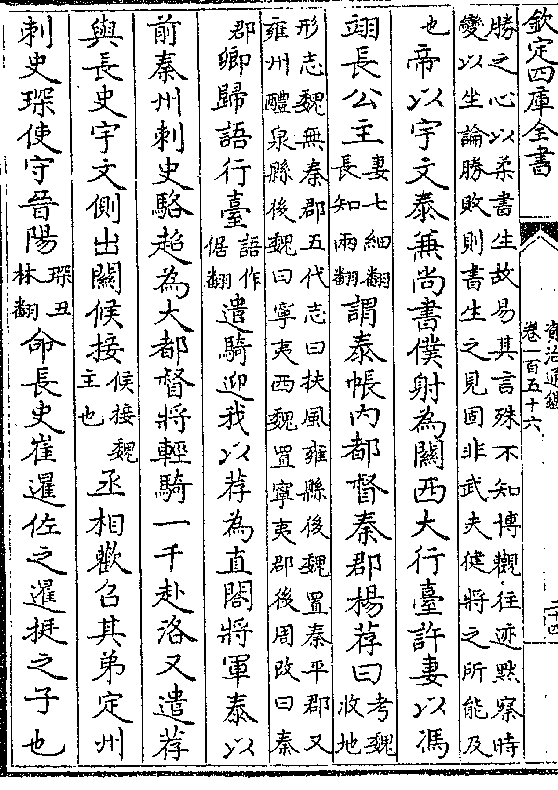 欽定四庫全書
勝之心以柔書生故易其言殊不知博觀往迹黙察時
變以坐論勝敗則書生之見固非武夫健將之所能及
也帝以宇文泰兼尚書僕射為關西大行臺許妻以馮
翊長公主妻七細翻長知兩翻謂泰帳内都督秦郡楊荐曰考魏收地
形志魏無秦郡五代志曰扶風雍縣後魏置秦平郡又
雍州醴泉縣後魏曰寧夷西魏置寧夷郡後周改曰秦
郡卿歸語行臺語作倨翻遣騎迎我以荐為直閤將軍泰以
前秦州刺史駱超為大都督將輕騎一千赴洛又遣荐
與長史宇文側出關候接候接魏主也丞相歡召其弟定州
刺史琛使守晉陽琛丑林翻命長史崔暹佐之暹挺之子也
資治通鑑
卷一百五十六